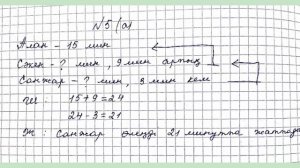 №5 (а)
Алан – 15 мин
Сәкен – ? мин, 9 мин артық
Санжар – ? мин, 3 мин кем
Ш: 15+9=24
24-3=21
Ж: Санжар өлеңді 21 минутта жаттады